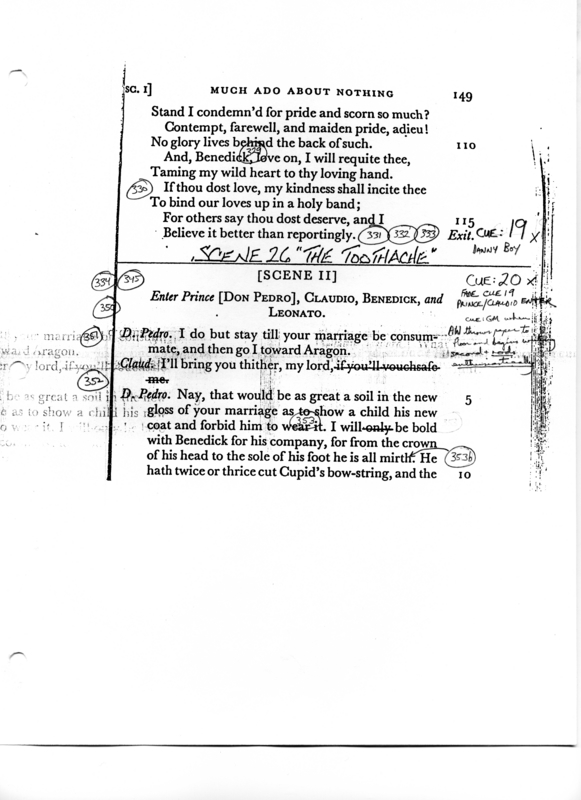 SC. I] MUCH ADO ABOUT NOTHING 149
Stand I condemn'd for pride and scorn so much?
Contempt, farewell, and maiden pride, adieu!
No glory lives behind the back of such. 110
329
And, Benedick, love on, I will requite thee,
Taming my wild heart to thy loving hand.
330 If thou dost love, my kindness shall incite thee
To bind our loves up in a holy band;
For others say thou dost deserve, and I 115
Believe it better than reportingly. 331 332 333 Exit. CUE: 19 x
DANNY BOY
SCENE 26 "THE TOOTHACHE"
334 345 [SCENE II] CUE: 20 x
FADE CUE 19
350 Enter Prince [DON PEDRO], CLAUDIO, BENEDICK, and PRINCE/CLAUDIO ENTER
LEONATO.
CUE: GM when
351 D. Pedro. I do but stay till your marriage be consum-
mate, and then go I toward Aragon.
Claud. I'll bring you thither, my lord, if you'll vouchsafe
352 me.
D. Pedro. Nay, that would be as great a soil in the new 5
gloss of your marriage as to show a child his new
353
coat and forbid him to wear it. I will only be bold
with Benedick for his company, for from the crown
of his head to the sole of his foot he is all mirth. He 353b
hath twice or thrice cut Cupid's bow-string, and the 10